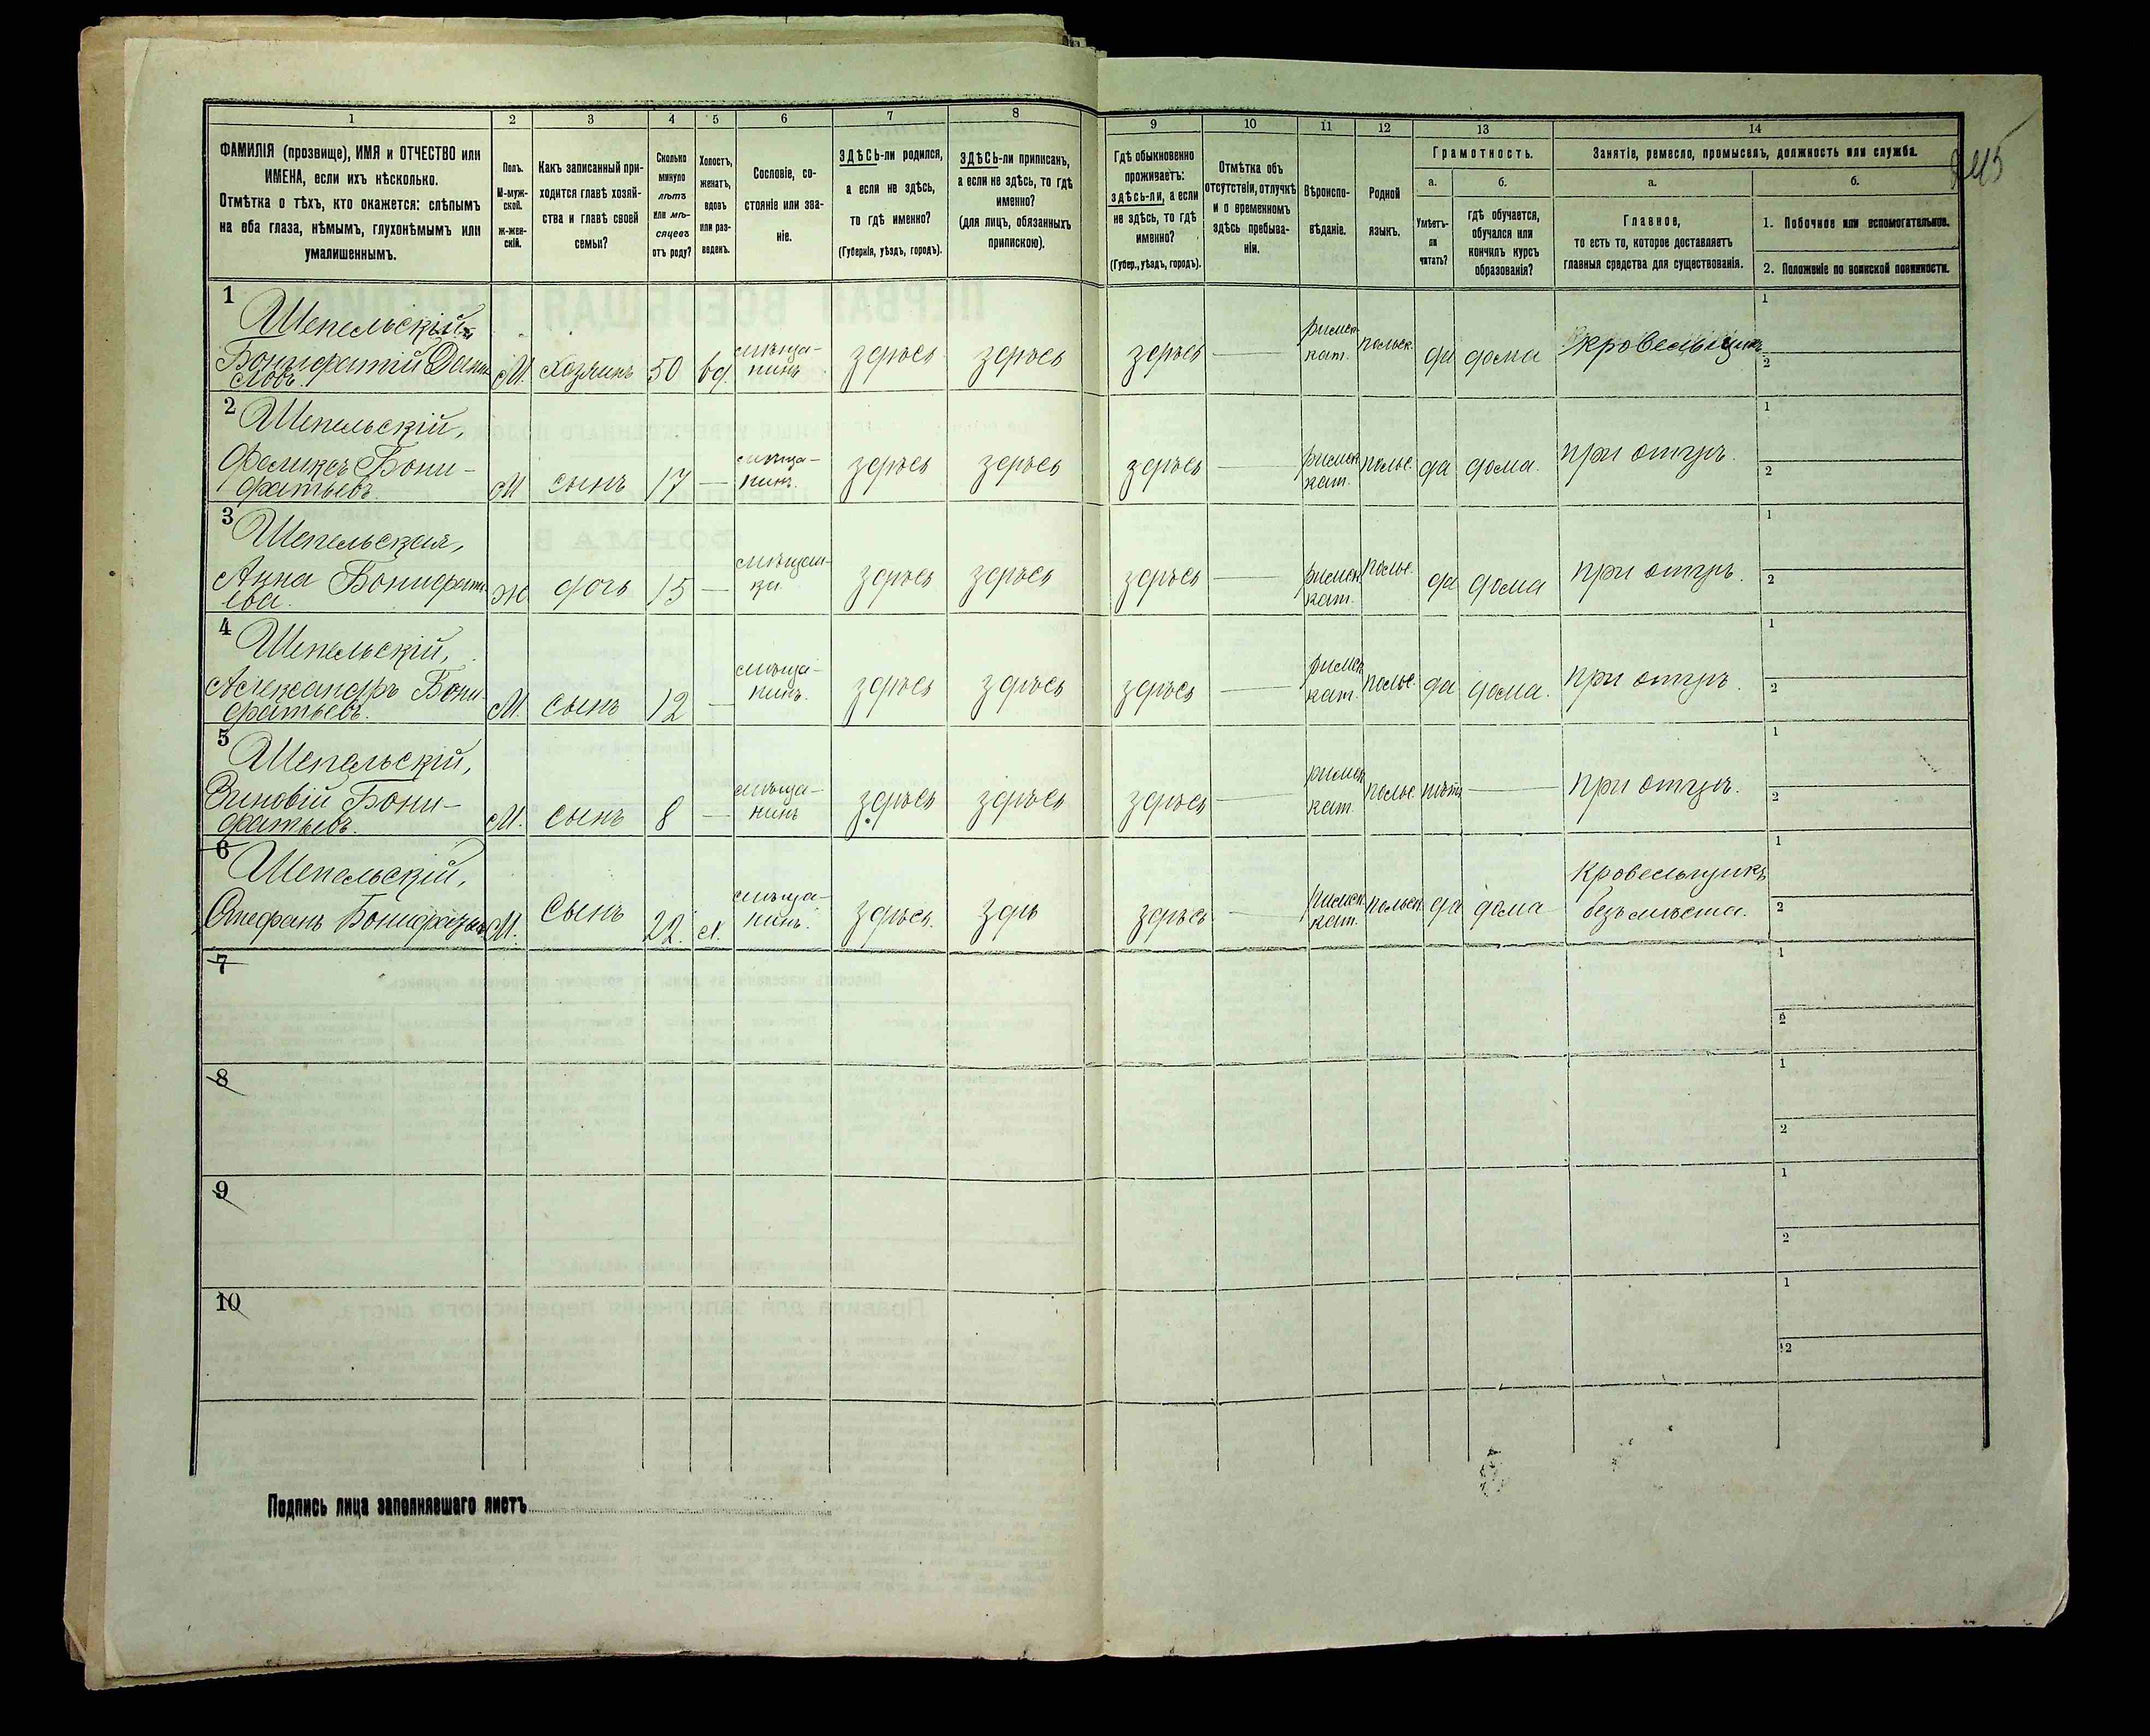 1 2 3 4 5 6 7 8 9 10 11 12 13 14
ФАМИЛІЯ (прозвище), ИМЯ и ОТЧЕСТВО или
ИМЕНА, если ихъ нѣсколько.
Отмѣтка о тѣхъ, кто окажется: слѣпымъ
на оба глаза, нѣмымъ, глухонѣмымъ или
умалишеннымъ.
Полъ.
М-муж-
ской.
ж-жен-
скій.
Какъ записанный при-
ходится главѣ хозяй-
ства и главѣ своей
семьи?
Сколько
минуло
лѣтъ
или мѣ-
сяцевъ
отъ роду?
Холостъ,
женатъ,
вдовъ
или раз-
веденъ.
Сословіе, со-
стояніе или зва-
ніе.
ЗДѢСЬ-ли родился,
а если не здѣсь,
то гдѣ именно?
(Губернія, уѣздъ, городъ).
ЗДѢСЬ-ли приписанъ,
а если не здѣсь, то гдѣ
именно?
(для лицъ, обязанныхъ
припискою).
Гдѣ обыкновенно
проживаетъ:
здѣсь-ли, а если
не здѣсь, то гдѣ
именно?
(Губер., уѣздъ, городъ).
Отмѣтка объ
отсутствіи, отлучкѣ
и о временномъ
здѣсь пребыва-
ніи.
Вѣроиспо-
вѣданіе.
Родной
языкъ.
Грамотность.
а.
Умѣетъ-
ли
читать?
б.
гдѣ обучается,
обучался или
кончилъ курсъ
образованія?
Занятіе, ремесло, промыселъ, должность или служба.
а.
Главное,
то есть то, которое доставляетъ
главныя средства для существованія.
б.
1. Побочное или вспомогательное.
2. Положеніе по воинской повинности.
1
Шепельскій
Бонифатій
М. хозяинъ 50 вд. мѣща-
нинъ здѣсь здѣсь здѣсь — римск.
кат. польск. да дома кровельщикъ
1
2
2
Шепельскій,
Феликсъ Бони-
фатьевъ
М сынъ 17 — мѣща-
нинъ. здѣсь здѣсь здѣсь — римск
кат. польс. да дома. при отцѣ.
1
2
3
Шепельская,
Анна Бонифать
ева.
Ж дочь 15 — мѣщан-
ка здѣсь здѣсь здѣсь — римск
кат. польс. да дома при отцѣ.
1
2
4
Шепельскій,
Александръ Бони
фатьевъ.
М. сынъ 12 — мѣща-
нинъ. здѣсь здѣсь здѣсь — римск
кат. польс. да дома. при отцѣ.
1
2
5
Шепельскій,
Зиновій Бони-
фатьевъ.
М. сынъ 8 — мѣща-
нинъ здѣсь здѣсь здѣсь — римск
кат. польс. нѣтъ — при отцѣ.
1
2
6
Шепельскій,
Стефанъ
М. сынъ 22. х. мѣща-
нинъ. здѣсь. здѣ здѣсь — римск.
кат. польск. да дома Кровельщикъ
безъ мѣста.
1
2
7
1
2
8
1
2
9
1
2
10
1
2
Подпись лица заполнявшаго листъ